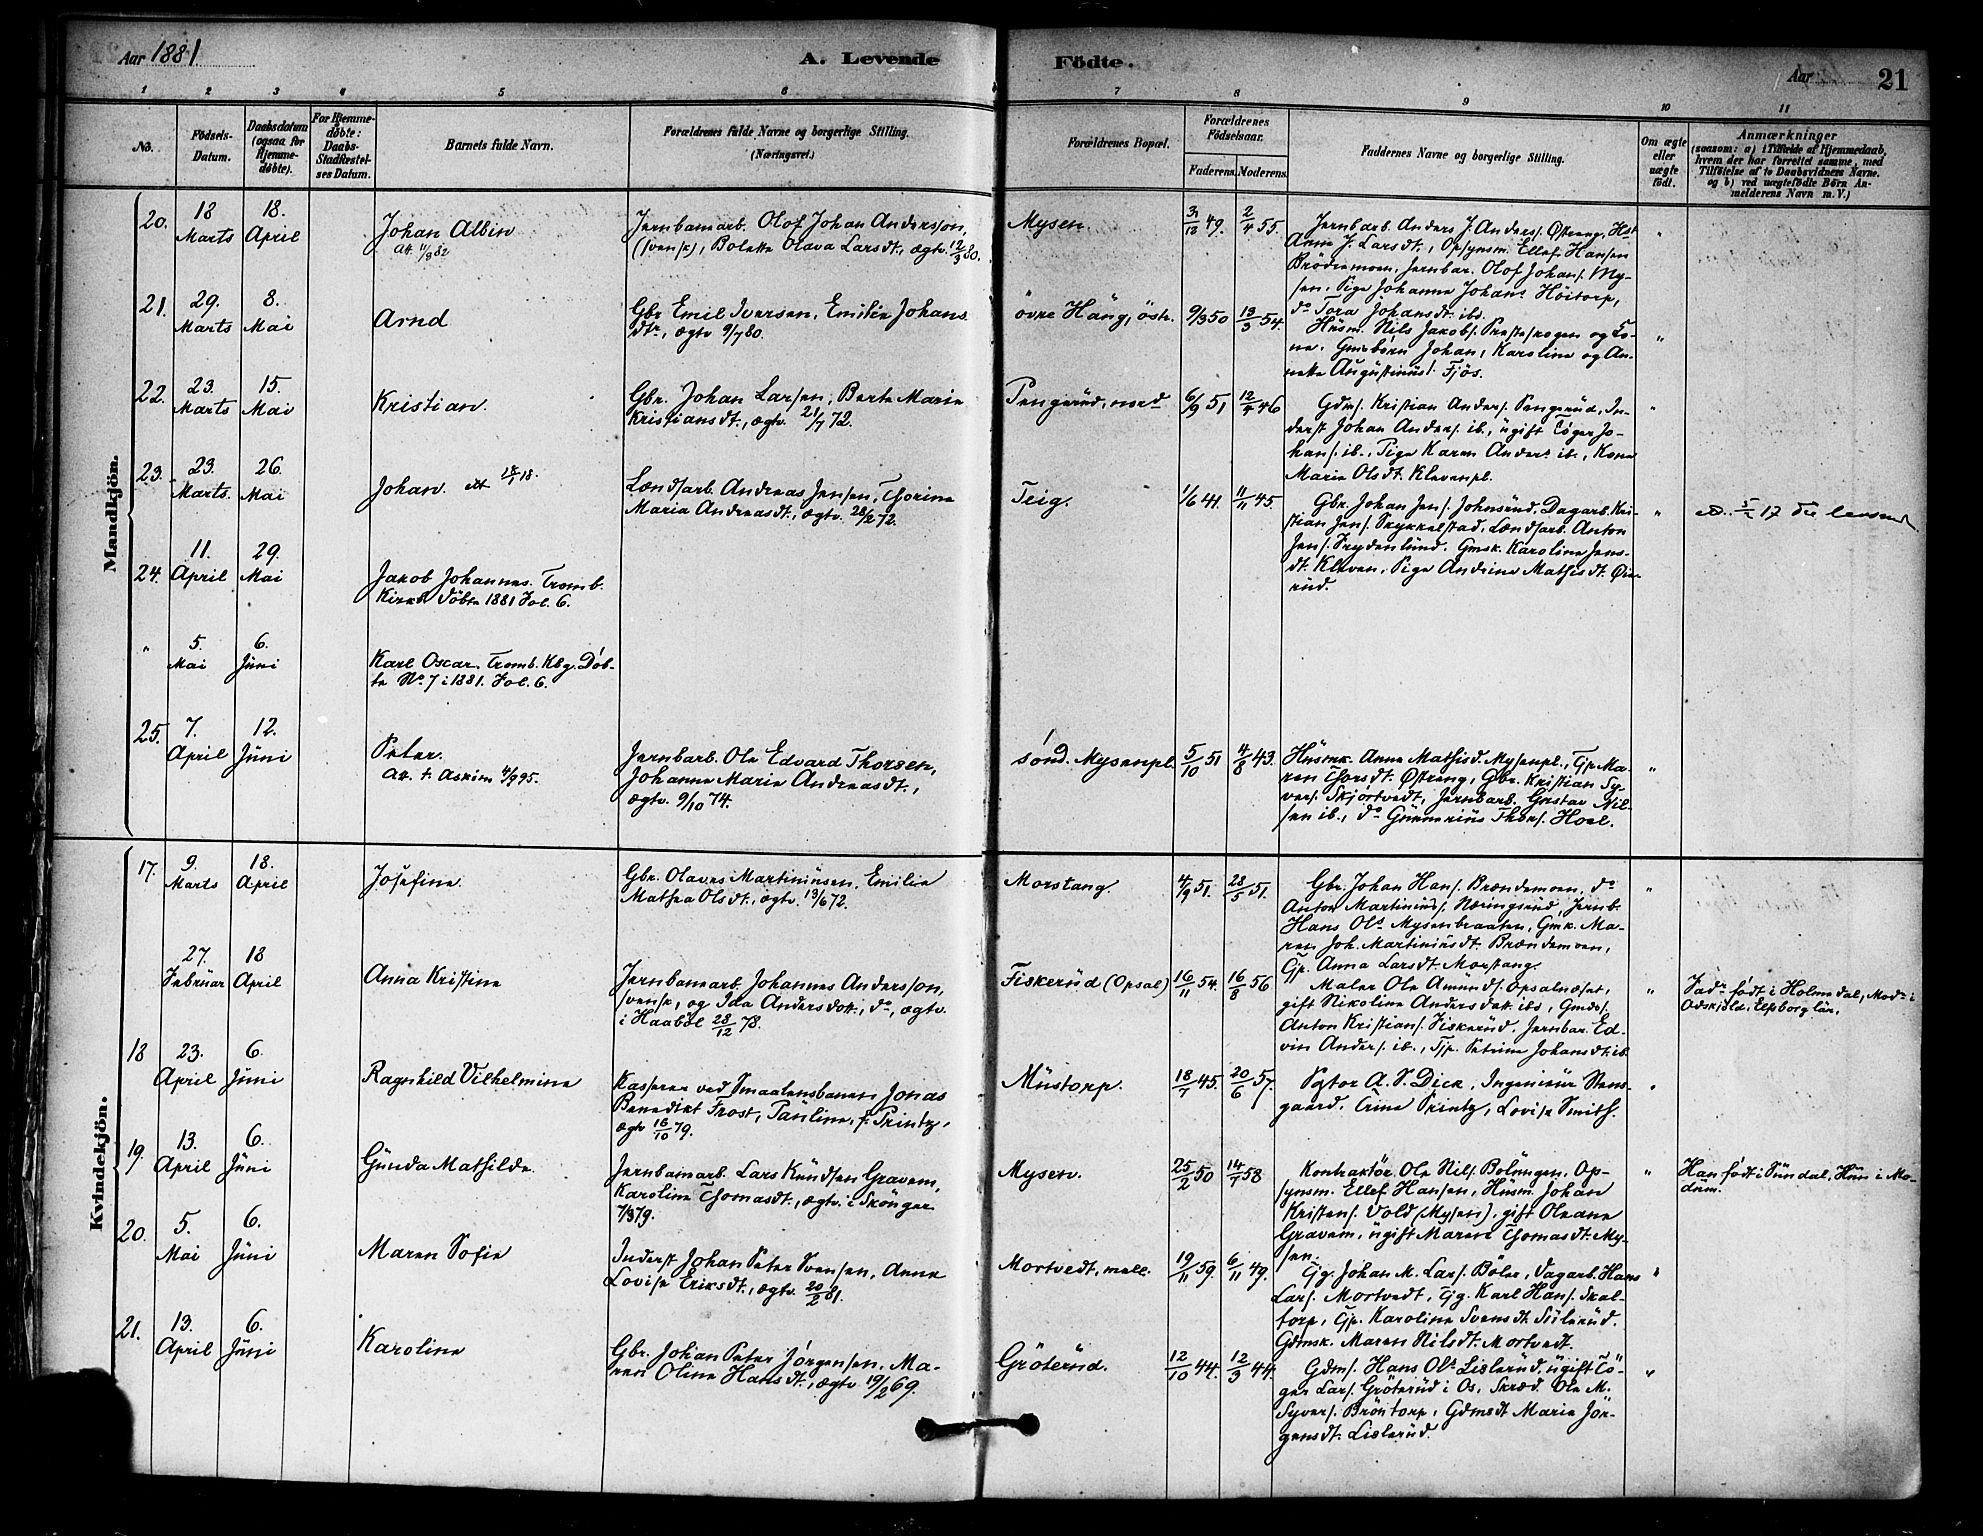 Aar 1881
A. Levende
Födte.
Aar
21
1 2 3 4 5 6 7 8 9 10 11
No.
Födsels-
Datum.
Daabsdatum
(ogsaa for
Hjemme-
döbte).
For Hjemme-
döbte:
Daabs-
Stadfæstel-
ses Datum.
Barnets fulde Navn.
Forældrenes fulde Navne og borgerlige Stilling.
(Næringsvei.)
Forældrenes Bopæl.
Forældrenes
Födselsaar.
Faderens. Moderens.
Faddernes Navne og borgerlige Stilling.
Om ægte
eller
uægte
födt.
Anmærkninger
(saasom: a) i Tilfælde af Hjemmedaab,
hvem der har forrettet samme, med
Tilföielse af to Daabsvidners Navne.
og b) ved uægtefödte Börn An-
melderens Navn m. V.)
Mandkjön.
20.
18
Marts
18.
April
Johan Albin
Att. 11/8 82
Jernbanearb. Olof Johan Andersson,
(svensk), Bolette Olava Larsdt., ægtv. 12/3 80.
Mysen
3/12 49.
2/4 55.
Jernbarb. Anders J. Anders. Østeng, Hst
Anne J. Larsdt., Opsynsm. Ellef Hansen
Brödremoen, Jernbar. Olof Johans. My-
sen, Pige Johanne Johans Höitorp,
do Tora Johansdt. ibd.
"
21.
29.
Marts
8.
Mai
Arnd
Gbr. Emil Iversen, Emilie Johans
dtr, ægtv 9/7 80.
övre Häng, östr.
9/3 50
13/3 54.
Husm. Nils Jakobs. Presteskogen og Ko-
ne. Gmsbörn Johan, Karoline og An-
nette Augustinius. Fjös.
"
22.
23.
Marts
15.
Mai
Kristian.
Gbr. Johan Larsen, Berte Marie
Kristiansdt., ægtv. 21/7 72.
Pengerud, nord
6/9 51
12/4 46
Gdm. Kristian Anders. Pengerud, In-
derst Johan Anders. ib., ugift Töger Jo-
hans. ib., Pige Karen Anders ib., Kone
Marie Olsdt. Klevenpl.
"
23.
23.
Marts.
26.
Mai
Johan. att 18/1 18.
Lændsarb. Andreas Jensen, Thorine
Maria Andreasdt., ægtv. 28/2 72.
Teig.
1/6 41.
11/11 45.
Gbr. Johan Jens. Johnsrud. Dagarb. Kri-
stian Jens. Prykkelstad. Lændsarb. Anton
Jens. Frydenlund. Gmsk. Karoline Jens-
dt. Kleven, Pige Andrine Mathisdt. Öie-
rud.
"
24.
11.
April
29.
Mai
Jakob Johannes. Tromb.
Kirkeb. Döbte 1881 Fol. 6.
"
5.
Mai
6.
Juni
Karl Oscar. Tromb. Kbg. Döb-
te No 7 i 1881. Fol. 6.
25.
7.
April
12.
Juni
Peter.
Att. t. Askim 4/9 95.
Jernbarb. Ole Edvard Thorsen,
Johanne Marie Andreasdt.,
ægtv. 9/10 74.
sönd. Mysenpl.
5/10 51
4/8 43.
Husmk. Anne Mathisd. Mysenpl., Gp. Ma-
ren Thorsdt. Østeng, Gbr. Kristian Sy-
vers. Skjörtvedt, Jernbarb. Gustav Nil-
sen ib., do Gunnerius Thors. Hoel.
"
Kvindekjön.
17.
9.
Marts
18.
April
Josefine.
Gbr. Olaves Martiniusen, Emilie
Mathea Olsdt., ægtv. 13/6 72.
Morstang.
4/9 51.
28/5 51.
Gbr. Johan Hans. Brændemoen, do
Anton Martinius. Næringsrud, Jernb.
Hans Ols Mysenbraaten, Gmk. Ma-
ren Joh. Martiniusdt. Brændemoen,
Gp. Anna Larsdt. Morstang.
"
27.
Februar
18
April
Anna Kristine
Jernbanearb. Johannes Andersson,
svensk, og Ida Andersdott., do, ægtv.
i Haaböl 28/12 78.
Fiskerud (Opsal)
16/11 54.
16/8 56
Maler Ole Amunds. Opsalnæset,
gift Nikoline Andersdatt. ibd., Gmds.
Anton Kristians. Fiskerud. Jernbar. Ed-
vin Anders. ib., Tjp. Petrine Johansdt. ib.
"
Fadr född i Holmedal, Modr i
Ödskjöld, Elfsborg län.
18
23.
April
6.
Juni
Ragnhild Vilhelmine
Kasserer ved Smaalensbanen Jonas
Benedikt Frost, Pauline, f. Printz,
ægtv 16/10 79.
Mustorp.
18/7 45.
20/6 57.
Pastor A. S. Dick, Ingeniør Stens-
gaard. Trine Printz, Lovise Smith.
"
19.
13.
April
6.
Juni
Gunda Mathilde.
Jernbanearb. Lars Knudsen Gravem,
Karoline Thomasdt., ægtv. i Skönger
7/3 79.
Mysen.
25/2 50
14/7 58
Kontraktör Ole Nils. Bölungen, Op-
synsm. Ellef Hansen, Husm. Johan
Kristens. Vold (Mysen), gift Oleane
Gravem, ugift Maren Thomasdt. My-
sen.
"
Han født i Sundal, Hun i Mo-
dum.
20.
5.
Mai
6.
Juni
Maren Sofie
Inderst Johan Peter Svensen, Anne
Lovise Eriksdt., ægtv. 20/2 81.
Mortvedt, mell.
19/11 59.
6/11 49.
Tjg. Johan M. Lars. Böler, Dagarb. Hans
Lars. Mortvedt, Tjg. Karl Hans. Skal-
torp, Tjp. Karoline Svensdt. Sülerud.
Gdmsk. Maren Nilsdt. Mortvedt.
"
21.
13.
April
6.
Juni
Karoline
Gbr. Johan Peter Jörgensen, Ma-
ren Oline Hansdt., ægtv. 19/2 69.
Gröterud.
12/10 44.
12/3 44.
Gdm. Hans Ols Lislerud, ugift Tö-
ger Lars. Gröterud i Os, Skræd. Ole M.
Syvers. Bröntorp, Gdmsdt Marie Jör-
gensdt. Lislerud.
"